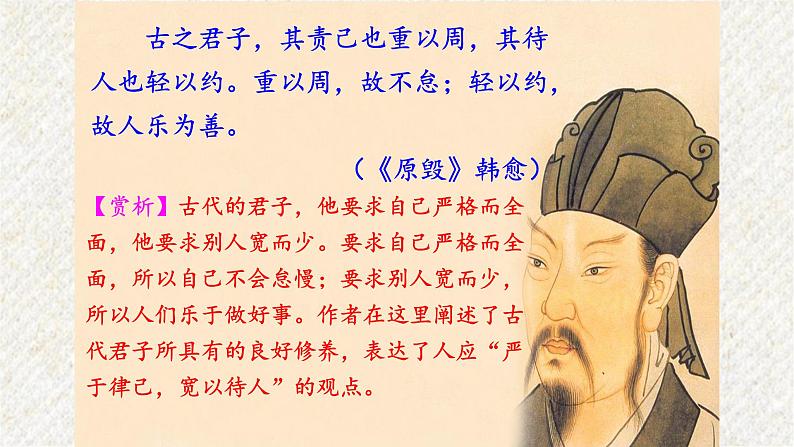 古之君子，其责己也重以周，其待
人也轻以约。重以周，故不怠；轻以约，
故人乐为善。
（《原毁》韩愈）
【赏析】古代的君子，他要求自己严格而全
面，他要求别人宽而少。要求自己严格而全
面，所以自己不会怠慢；要求别人宽而少，
所以人们乐于做好事。作者在这里阐述了古
代君子所具有的良好修养，表达了人应“严
于律己，宽以待人”的观点。